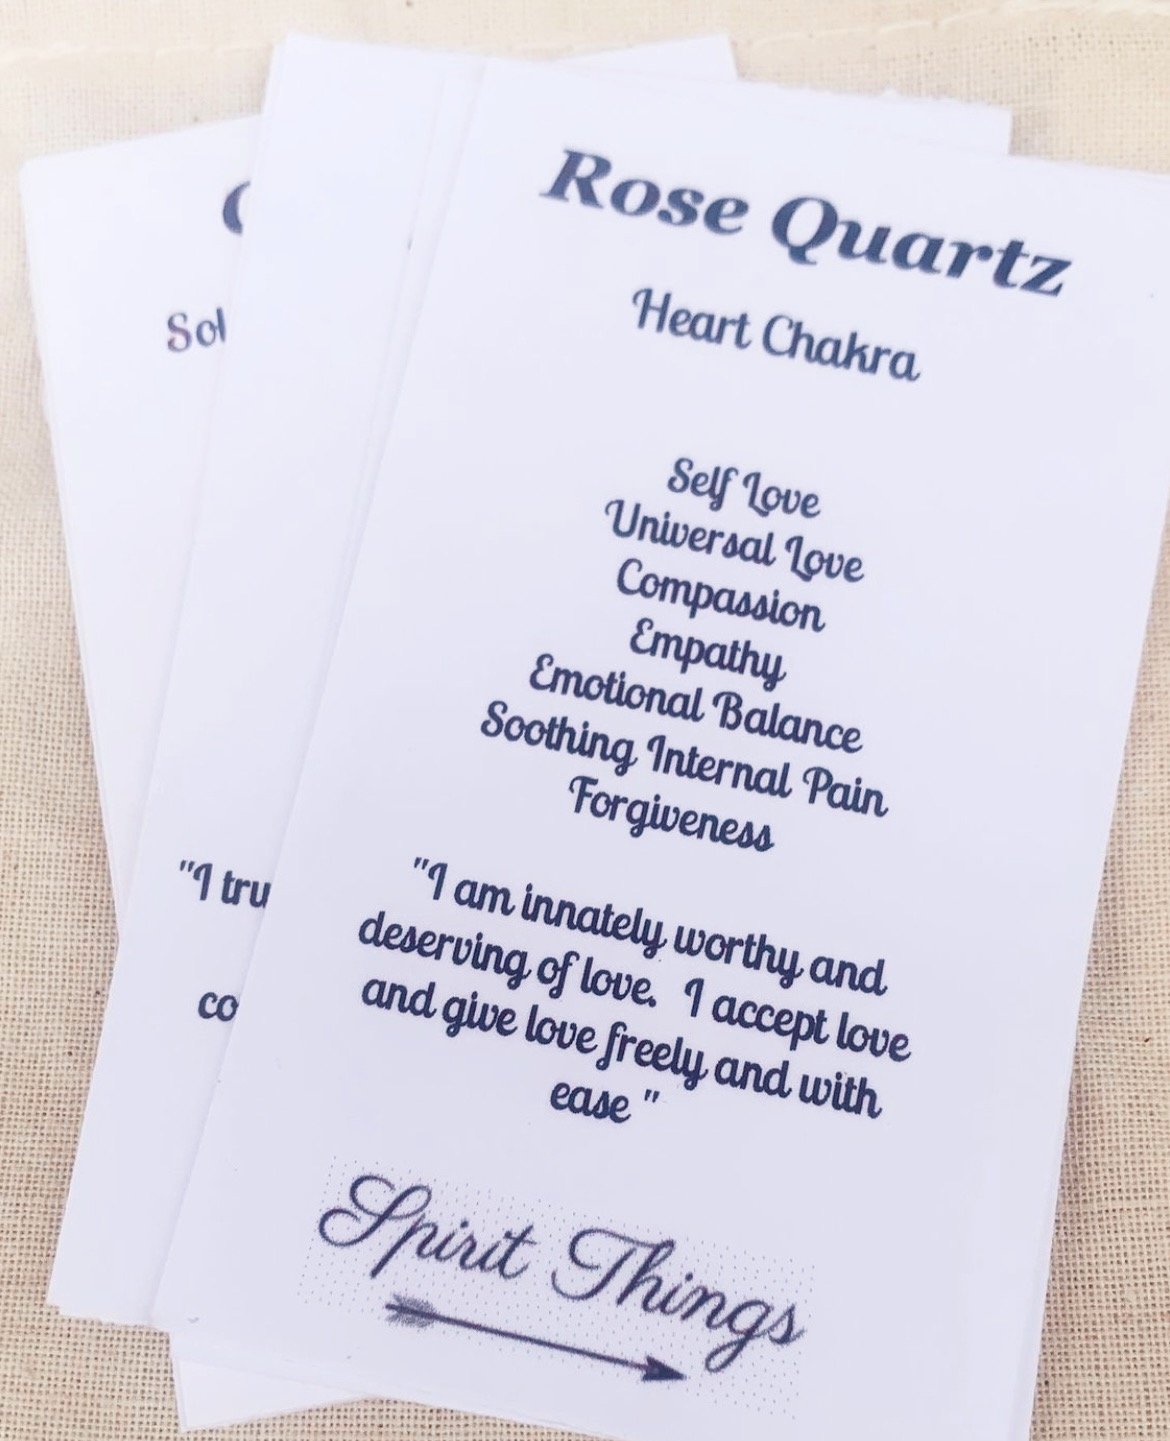 Rose Quartz
Heart Chakra
Self Love
Universal Love
Compassion
Empathy
Emotional Balance
Soothing Internal Pain
Forgiveness
"I am innately worthy and
deserving of love. I accept love
and give love freely and with
ease "
Spirit Things
"I